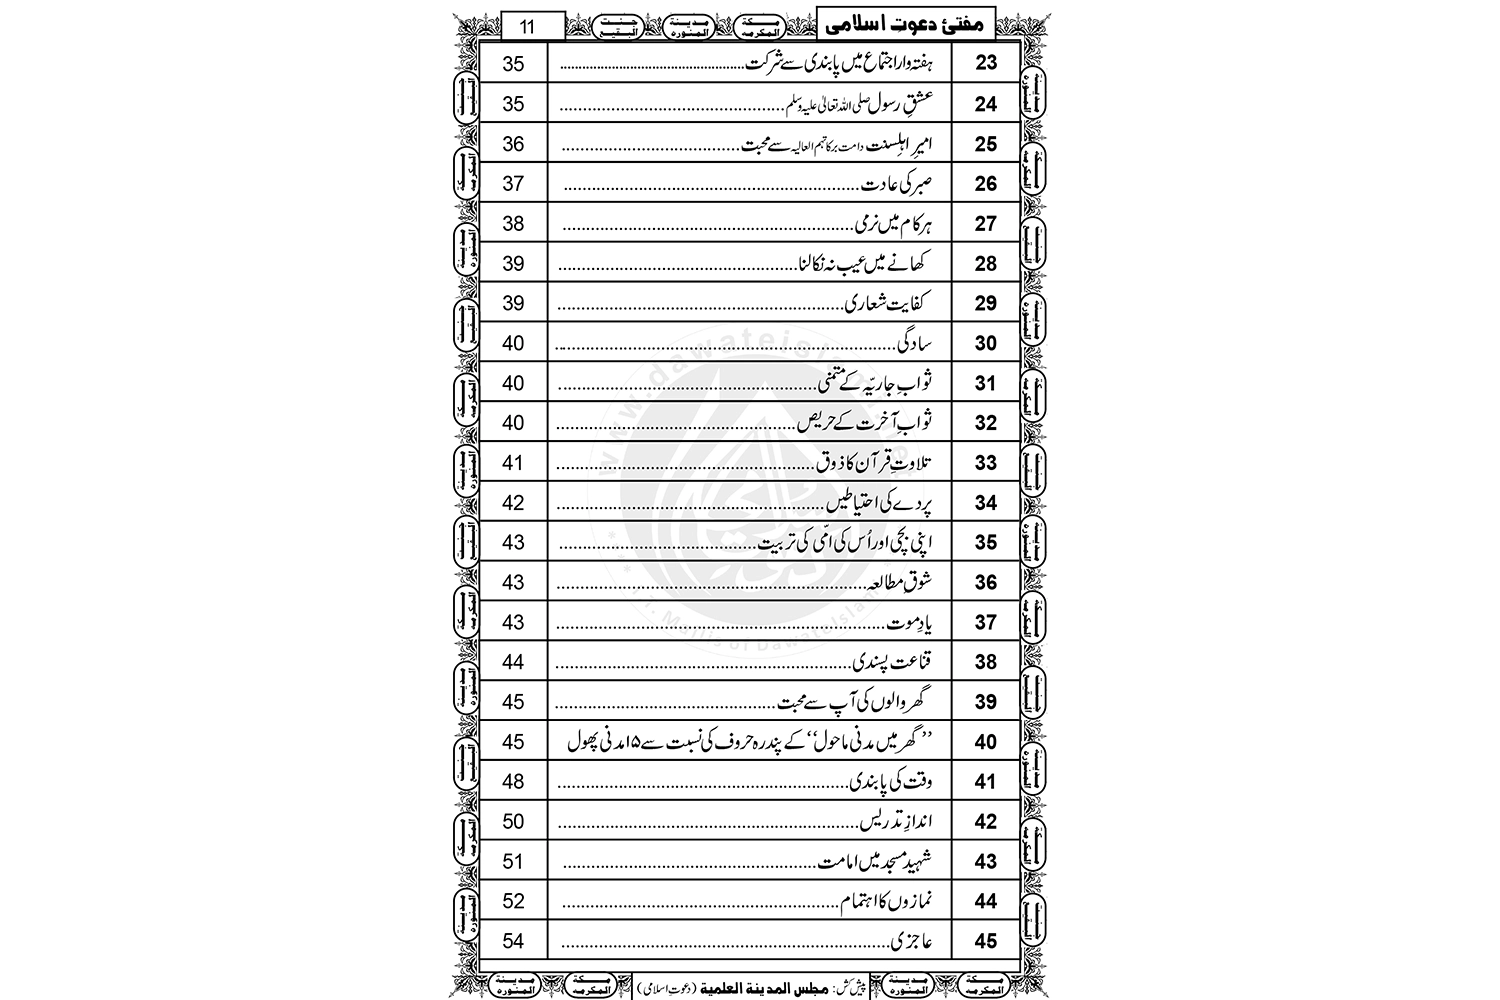 مفتئ دعوت اسلامی
11
23 ہفتہ وار اجتماع میں پابندی سے شرکت 35
24 عشقِ رسول صلی اللہ تعالیٰ علیہ وسلم 35
25 امیرِ اہلسنت دامت برکاتہم العالیہ سے محبت 36
26 صبر کی عادت 37
27 ہر کام میں نرمی 38
28 کھانے میں عیب نہ نکالنا 39
29 کفایت شعاری 39
30 سادگی 40
31 ثوابِ جاریّہ کے متمنی 40
32 ثوابِ آخرت کے حریص 40
33 تلاوتِ قرآن کا ذوق 41
34 پردے کی احتیاطیں 42
35 اپنی بچی اور اُس کی امّی کی تربیت 43
36 شوقِ مطالعہ 43
37 یادِ موت 43
38 قناعت پسندی 44
39 گھر والوں کی آپ سے محبت 45
40 ’’گھر میں مدنی ماحول‘‘ کے پندرہ حروف کی نسبت سے ۱۵ مدنی پھول 45
41 وقت کی پابندی 48
42 اندازِ تدریس 50
43 شہید مسجد میں امامت 51
44 نمازوں کا اہتمام 52
45 عاجزی 54
پیش کش: مجلس المدینة العلمیة (دعوتِ اسلامی)
مكة المكرمه
مدينة المنوره
جنت البقيع
www.dawateislami.net
I.T. Majlis of DawateIslami